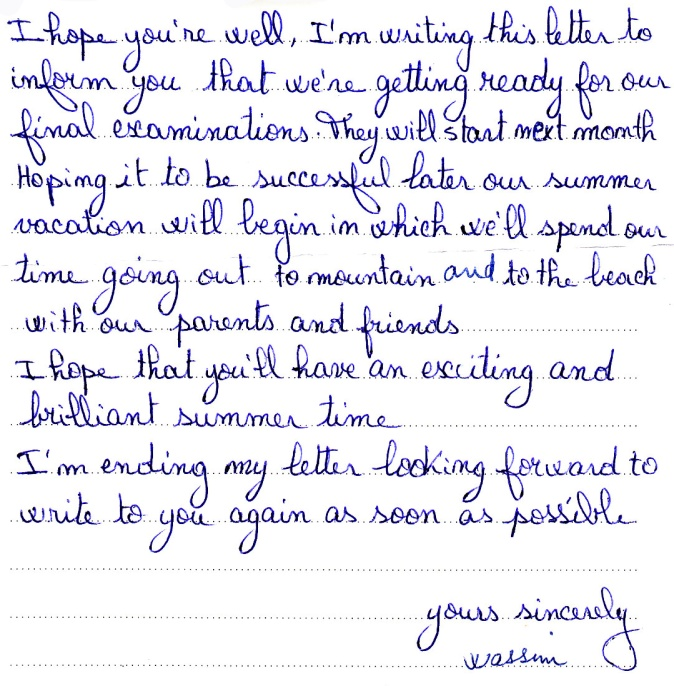 I hope you're well, I'm writing this letter to
inform you that we're getting ready for our
final examinations. They will start next month
Hoping it to be successful later our summer
vacation will begin in which we'll spend our
time going out to mountain and to the beach
with our parents and friends
I hope that you'll have an exciting and
brilliant summer time
I'm ending my letter looking forward to
write to you again as soon as possible
yours sincerely
wassim